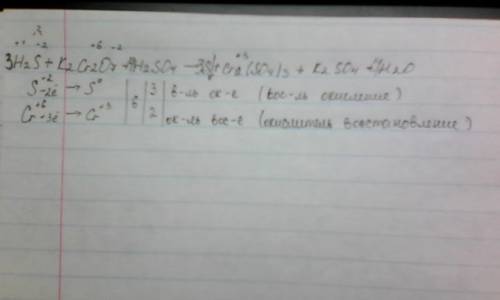 +1 -2 +6 -2 +3
3H2S + K2Cr2O7 + 4H2SO4 → 3S↓ + Cr2(SO4)3 + K2SO4 + H2O
S-2 -2e → S0 | 6 | 3 | в-ль ок-е (вос-ль окисление)
Cr+6 +3e → Cr+3 | 2 | ок-ль вос-е (окислитель восстановление)